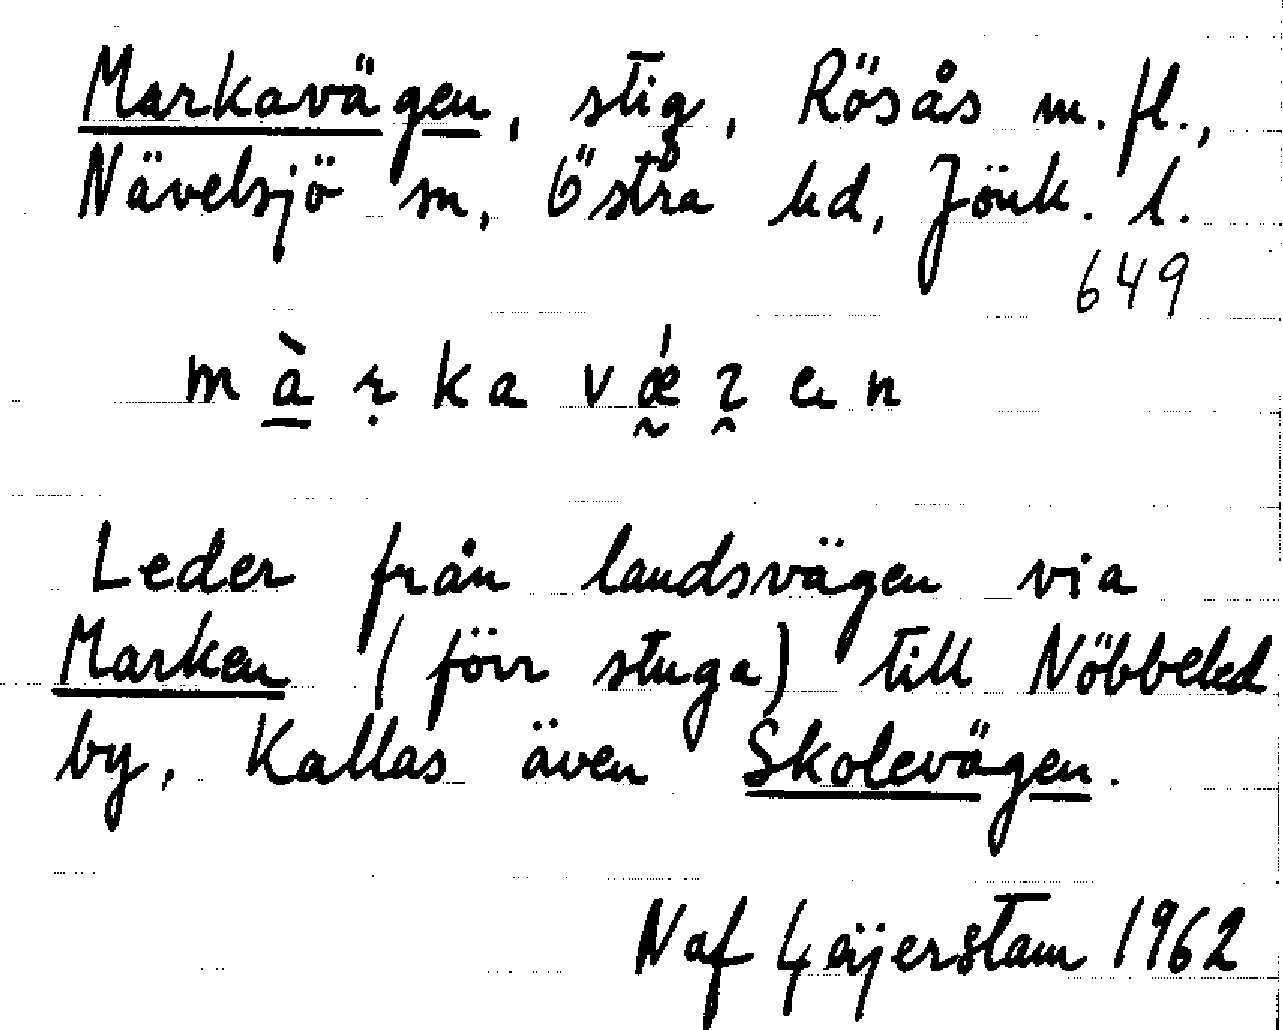 Markavägen, stig, Rösås m.fl.,
Nävelsjö sn, Östra hd, Jönk. l.
649
màrkavǽgen
Leder från landsvägen via
Marken (förr stuga) till Nöbbeled
by, Kallas även Skolevägen.
N af Geijerstam 1962